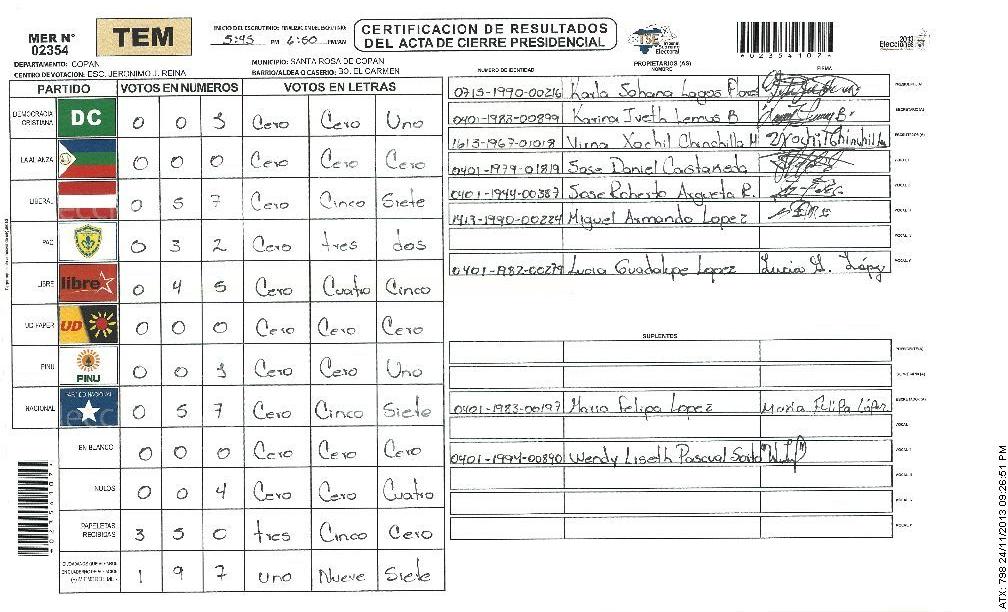 MER N° 02354
TEM
INICIO DEL ESCRUTINIO 5:45 PM FINALIZACION DEL ESCRUTINIO 6:50 PM/AM
CERTIFICACION DE RESULTADOS
DEL ACTA DE CIERRE PRESIDENCIAL
TSE Tribunal Supremo Electoral
*02354107*
2013 Elecciones
DEPARTAMENTO: COPAN
MUNICIPIO: SANTA ROSA DE COPAN
CENTRO DE VOTACION: ESC. JERONIMO J. REINA
BARRIO/ALDEA O CASERIO: BO. EL CARMEN
PARTIDO VOTOS EN NUMEROS VOTOS EN LETRAS
DEMOCRACIA CRISTIANA DC 0 0 1 Cero Cero Uno
LA ALIANZA 0 0 0 Cero Cero Cero
LIBERAL 0 5 7 Cero Cinco Siete
PAC 0 3 2 Cero tres dos
LIBRE libre 0 4 5 Cero Cuatro Cinco
UD-FAPER UD 0 0 0 Cero Cero Cero
PINU PINU 0 0 1 Cero Cero Uno
NACIONAL PARTIDO NACIONAL 0 5 7 Cero Cinco Siete
EN BLANCO 0 0 0 Cero Cero Cero
NULOS 0 0 4 Cero Cero Cuatro
PAPELETAS RECIBIDAS 3 5 0 tres Cinco Cero
1 9 7 uno Nueve Siete
PROPIETARIOS (AS)
NUMERO DE IDENTIDAD NOMBRE FIRMA
0715-1990-00216 Karla Johana Lagos Flores
0401-1983-00899 Karina Iveth Lemus B
1613-1967-01018 Virna Xochil Chinchilla M
0401-1979-01819 Jose Daniel Castañeda
0401-1944-00387 Jose Roberto Argueta R.
1413-1990-00224 Miguel Armando Lopez
0401-1982-00279 Lucia Guadalupe Lopez Lucia G. López
SUPLENTES
0401-1983-00197 Maria Felipa Lopez Maria Felipa López
0401-1994-00840 Wendy Liseth Pascual
ATX: 798 24/11/2013 09:26:51 PM